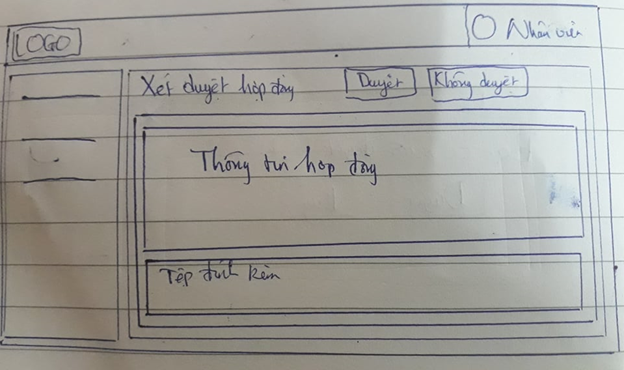 LOGO
Nhân viên
Xét duyệt hợp đồng
Duyệt
Không duyệt
Thông tin hợp đồng
Tệp đính kèm